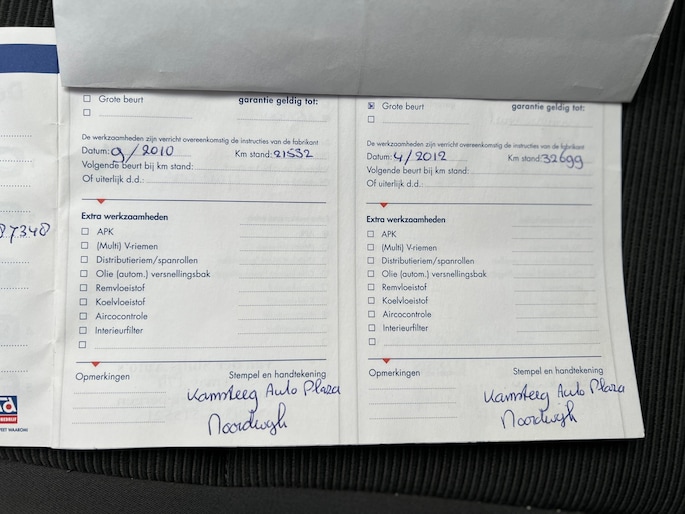 87348
Grote beurt
garantie geldig tot:
De werkzaamheden zijn verricht overeenkomstig de instructies van de fabrikant
Datum: 9/2010 Km stand: 21532
Volgende beurt bij km stand:
Of uiterlijk d.d.:
Extra werkzaamheden
APK
(Multi) V-riemen
Distributieriem/spanrollen
Olie (autom.) versnellingsbak
Remvloeistof
Koelvloeistof
Aircocontrole
Interieurfilter
Opmerkingen
Stempel en handtekening
Kamsteeg Auto Plaza
Noordwijk
Grote beurt
garantie geldig tot:
De werkzaamheden zijn verricht overeenkomstig de instructies van de fabrikant
Datum: 4/2012 Km stand: 32699
Volgende beurt bij km stand:
Of uiterlijk d.d.:
Extra werkzaamheden
APK
(Multi) V-riemen
Distributieriem/spanrollen
Olie (autom.) versnellingsbak
Remvloeistof
Koelvloeistof
Aircocontrole
Interieurfilter
Opmerkingen
Stempel en handtekening
Kamsteeg Auto Plaza
Noordwijk